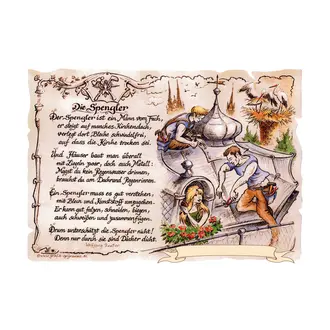 Die Spengler
Der Spengler ist ein Mann vom Fach,
er steigt auf manches Kirchendach,
verlegt dort Bleche schwindelfrei,
auf dass die Kirche trocken sei.
Und Häuser baut man überall
mit Ziegeln zwar, doch auch Metall!
Magst du kein Regenwasser drinnen,
brauchst du am Dachrand Regenrinnen.
Ein Spengler muss es gut verstehen,
mit Blech und Kunststoff umzugehen.
Er kann gut falzen, schneiden, bügen,
auch schweißen und zusammenfügen.
Drum unterschätzt die Spengler nicht!
Denn nur durch sie sind Dächer dicht.
Wolfgang